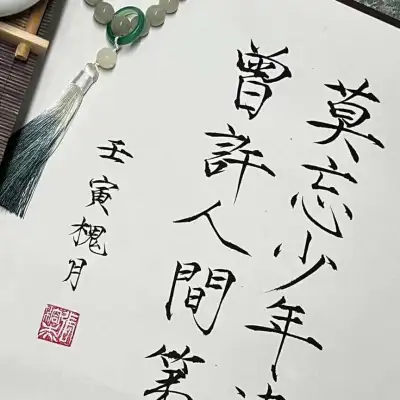 莫忘少年
曾許人間第
壬寅槐月